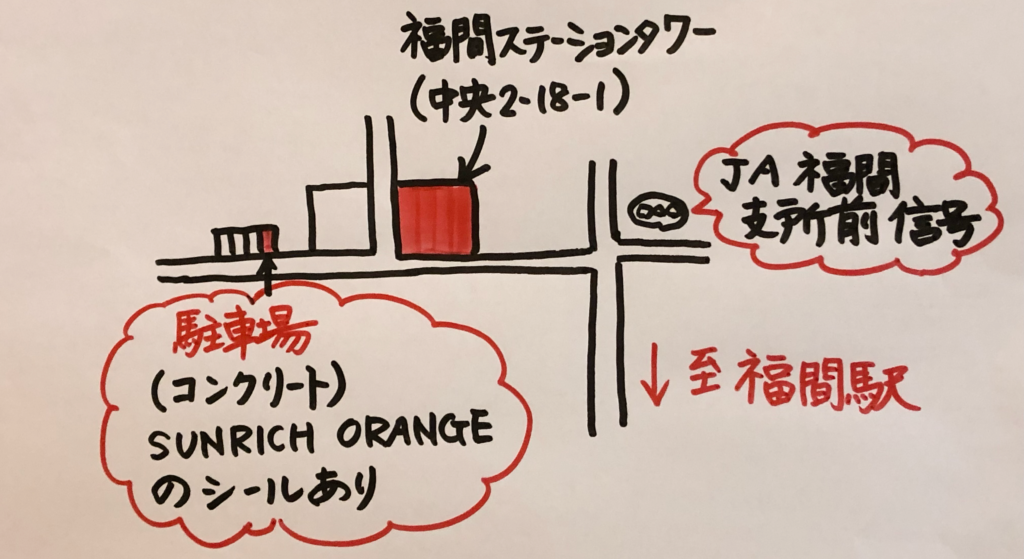 福間ステーションタワー
(中央2-18-1)
JA 福間
支所前 信号
駐車場
(コンクリート)
SUNRICH ORANGE
のシールあり
↓至福間駅